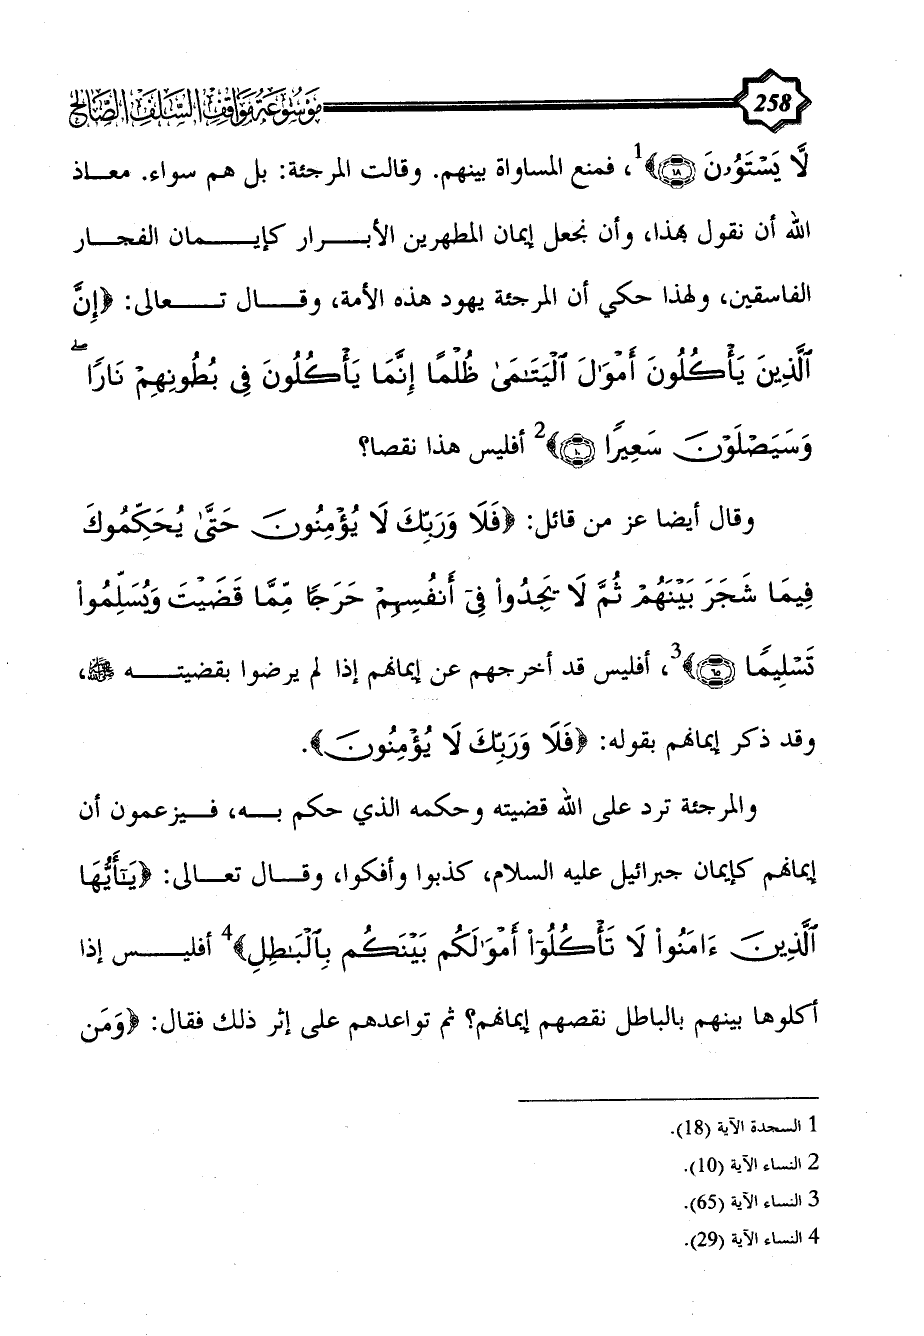 258
موسوعة مواقف السلف الصالح
لَّا يَسْتَوُۥنَ ۝١٨﴾1، فمنع المساواة بينهم. وقالت المرجئة: بل هم سواء. معاذ
الله أن نقول بهذا، وأن نجعل إيمان المطهرين الأبرار كإيمان الفجار
الفاسقين، ولهذا حكي أن المرجئة يهود هذه الأمة، وقال تعالى: ﴿إِنَّ
ٱلَّذِينَ يَأْكُلُونَ أَمْوَٰلَ ٱلْيَتَٰمَىٰ ظُلْمًا إِنَّمَا يَأْكُلُونَ فِى بُطُونِهِمْ نَارًا ۖ
وَسَيَصْلَوْنَ سَعِيرًا ۝١٠﴾2 أفليس هذا نقصا؟
وقال أيضا عز من قائل: ﴿فَلَا وَرَبِّكَ لَا يُؤْمِنُونَ حَتَّىٰ يُحَكِّمُوكَ
فِيمَا شَجَرَ بَيْنَهُمْ ثُمَّ لَا يَجِدُوا۟ فِىٓ أَنفُسِهِمْ حَرَجًا مِّمَّا قَضَيْتَ وَيُسَلِّمُوا۟
تَسْلِيمًا ۝٦٥﴾3، أفليس قد أخرجهم عن إيمانهم إذا لم يرضوا بقضيته ﷺ،
وقد ذكر إيمانهم بقوله: ﴿فَلَا وَرَبِّكَ لَا يُؤْمِنُونَ﴾.
والمرجئة ترد على الله قضيته وحكمه الذي حكم به، فيزعمون أن
إيمانهم كإيمان جبرائيل عليه السلام، كذبوا وأفكوا، وقال تعالى: ﴿يَٰٓأَيُّهَا
ٱلَّذِينَ ءَامَنُوا۟ لَا تَأْكُلُوٓا۟ أَمْوَٰلَكُم بَيْنَكُم بِٱلْبَٰطِلِ﴾4 أفليس إذا
أكلوها بينهم بالباطل نقصهم إيمانهم؟ ثم تواعدهم على إثر ذلك فقال: ﴿وَمَن
1 السجدة الآية (18).
2 النساء الآية (10).
3 النساء الآية (65).
4 النساء الآية (29).